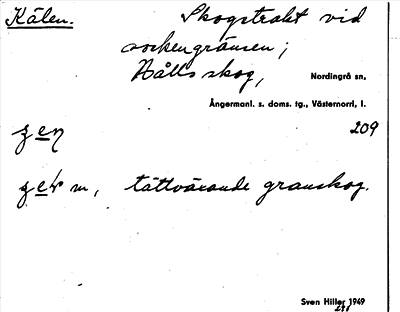 Kälen. Skogstrakt vid
sockengränsen;
Hälls skog, Nordingrå sn,
Ångermanl. s. doms. tg., Västernorrl, l.
209
m, tättväxande granskog.
Sven Hiller 1949